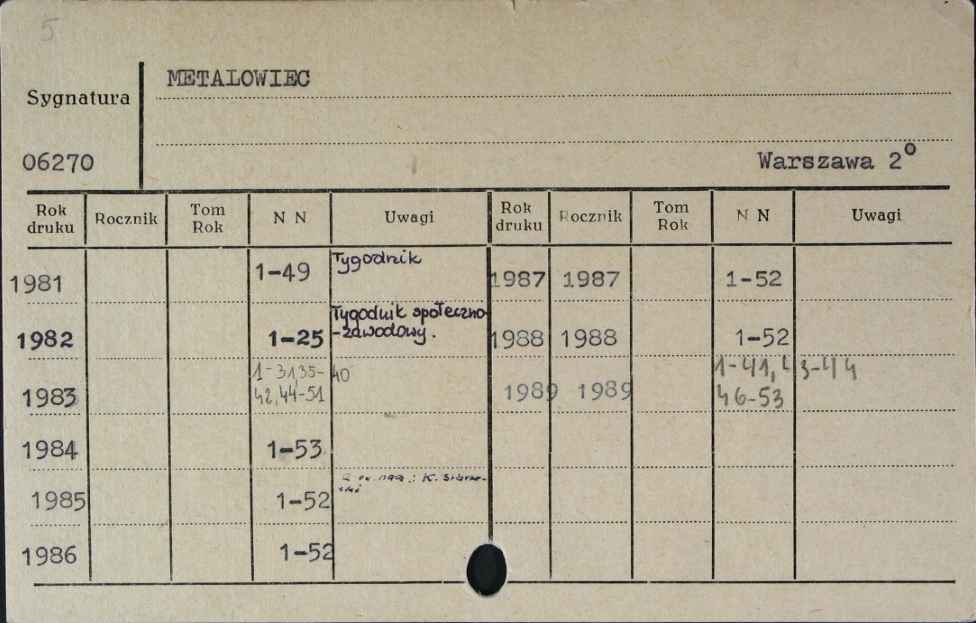 5
METALOWIEC
Sygnatura
06270
Warszawa 2°
Rok druku Rocznik Tom Rok N N Uwagi Rok druku Rocznik Tom Rok N N Uwagi
1981 1-49 Tygodnik 1987 1987 1-52
1982 1-25 Tygodnik społeczno-
-zawodowy. 1988 1988 1-52
1983 1-31,35-40
42,44-51 1989 1989 1-41, 43-44
46-53
1984 1-53
1985 1-52 K.
1986 1-52